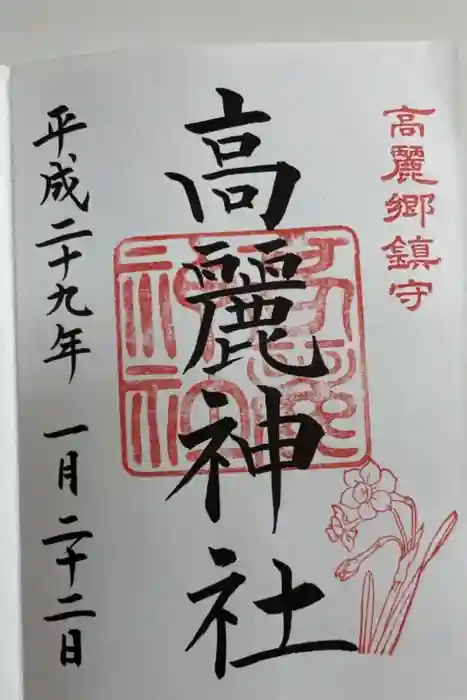 高麗郷鎮守
高麗神社
平成二十九年一月二十二日